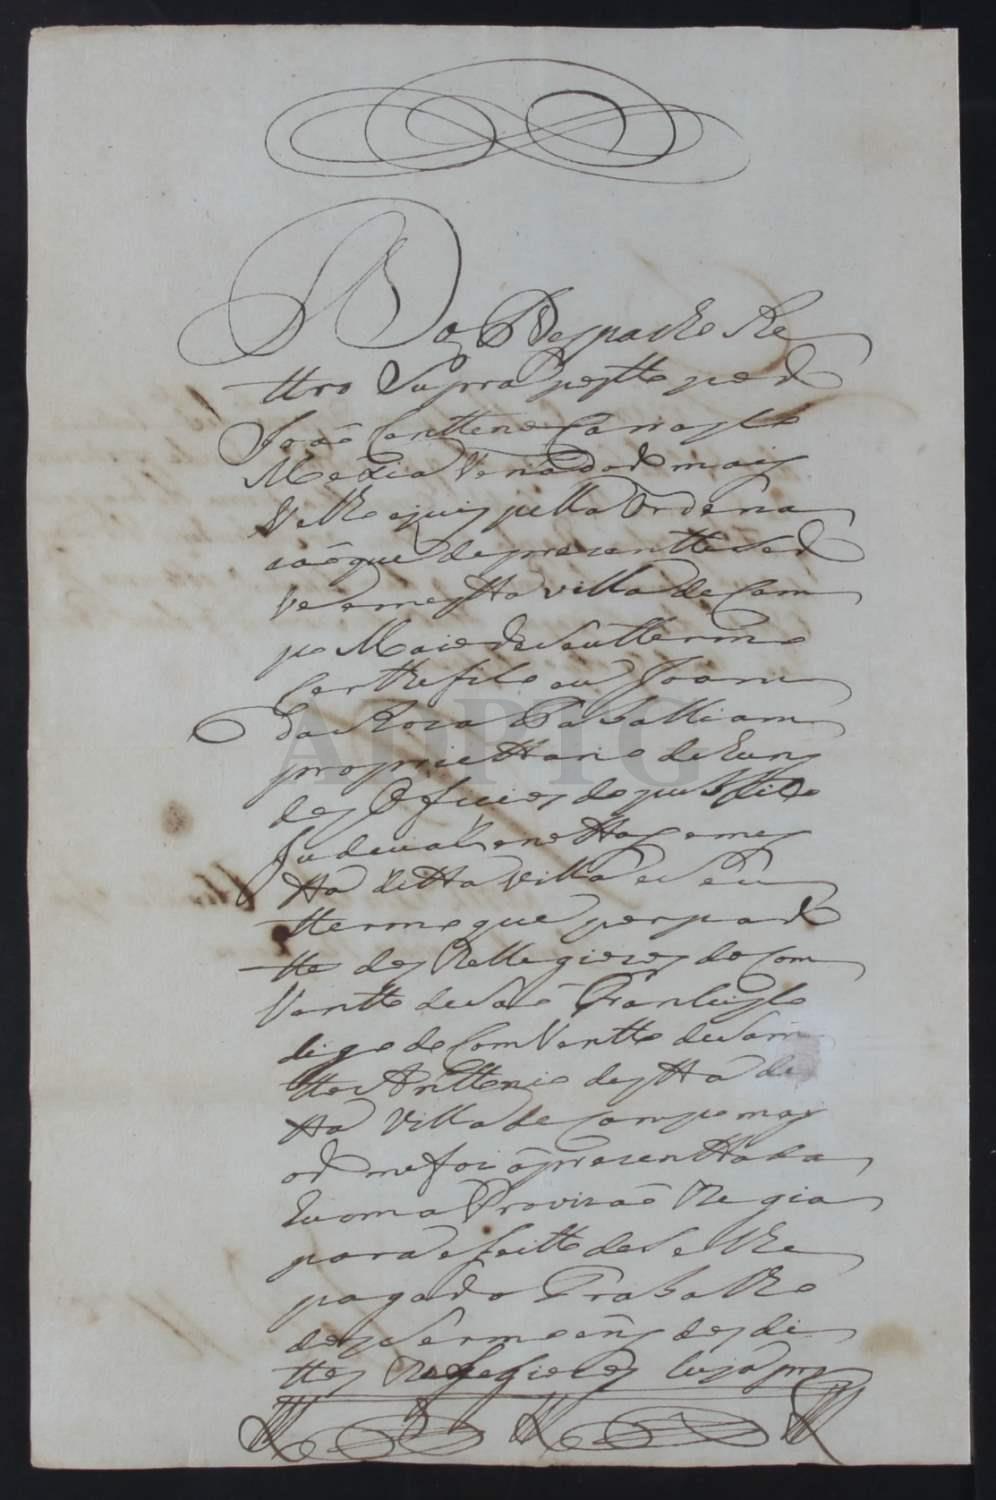 Do Despacho Re
ttro Supra postto por
João Centteno Carrasco
Mexia Veriador mais
Velho e juis pella Ordena
cão que de prezentte Ser
ve em estta villa de Cam
po Maior e seu tterm o
Certtefico eu Joam
da Roza Taballiam
propriettario de hum
dos Officios do publico
Judecial e nottas em es
tta ditta villa e seu
ttermo que por par
tte dos Rellegiozos do Com
Ventto de São Francisco
digo do Comventto de San
tto Anttonio destta di
tta Villa de Campo may
or me foi aprezenttada
huma Provizão Regia
para efeitto de Se lhe
pagar do Trabalho
dos Sermoens dos di
ttos Relegiozos cuja pr
ADPTG